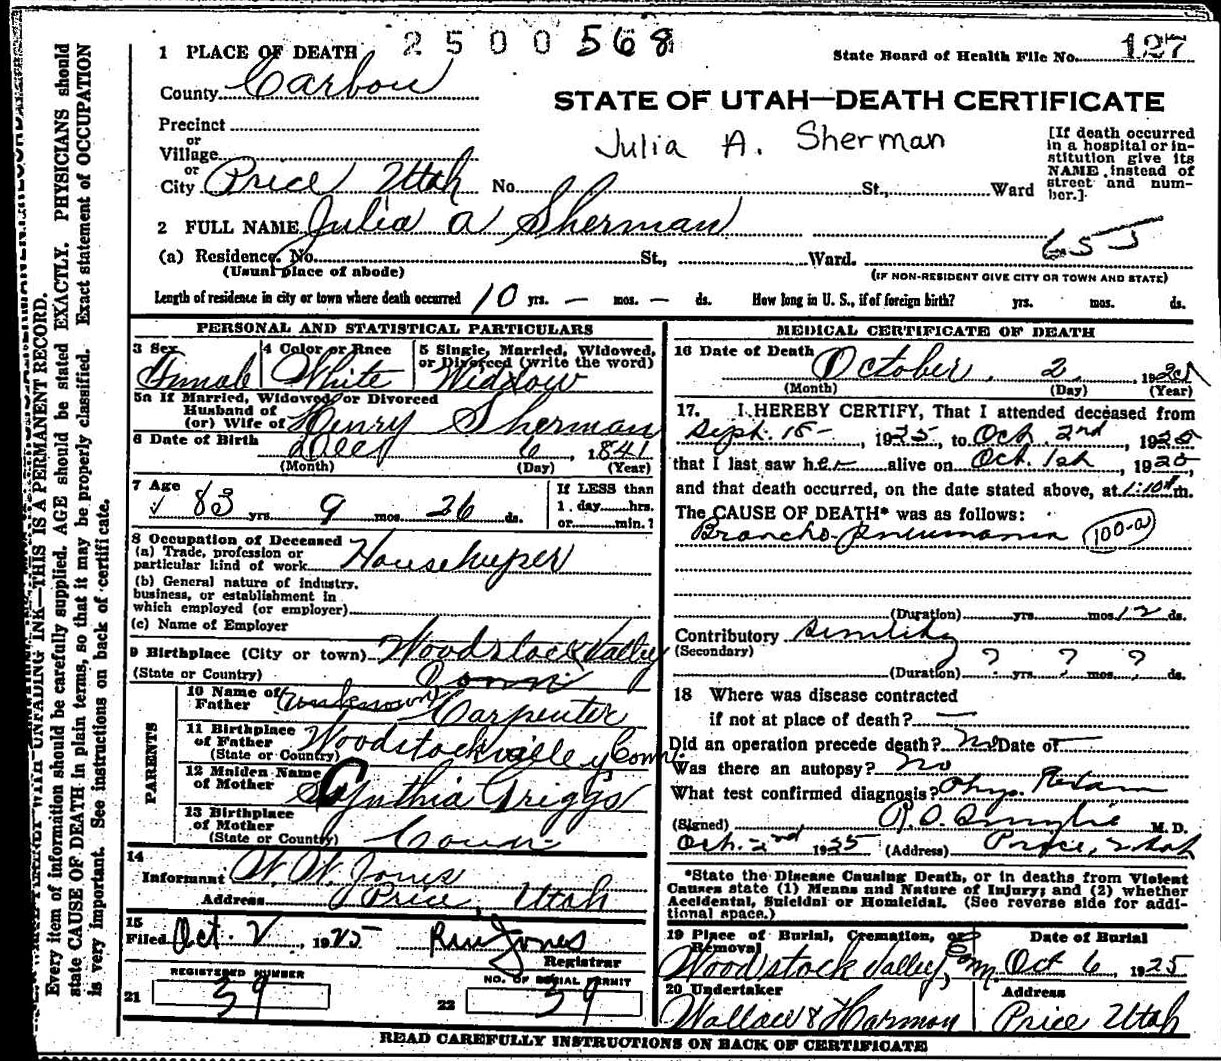 2500568
State Board of Health File No. 127
1 PLACE OF DEATH
County Carbon
STATE OF UTAH—DEATH CERTIFICATE
Julia A. Sherman
Precinct
or
Village
or
City Price Utah No. St., Ward
[If death occurred
in a hospital or in-
stitution give its
NAME instead of
street and num-
ber.]
2 FULL NAME Julia A Sherman
655
(a) Residence. No. St., Ward.
(Usual place of abode) (IF NON-RESIDENT GIVE CITY OR TOWN AND STATE)
Length of residence in city or town where death occurred 10 yrs. — mos. — ds. How long in U. S., if of foreign birth? yrs. mos. ds.
PERSONAL AND STATISTICAL PARTICULARS
3 Sex 4 Color or Race 5 Single, Married, Widowed,
or Divorced (write the word)
Female White Widow
5a If Married, Widowed or Divorced
Husband of
(or) Wife of Henry Sherman
6 Date of Birth Dec 6, 1841
(Month) (Day) (Year)
7 Age
83 yrs. 9 mos. 26 ds.
If LESS than
1 day hrs.
or min.?
8 Occupation of Deceased
(a) Trade, profession or
particular kind of work Housekeeper
(b) General nature of industry,
business, or establishment in
which employed (or employer)
(c) Name of Employer
9 Birthplace (City or town) Woodstock Valley
(State or Country) Conn
PARENTS
10 Name of
Father (Unknown) Carpenter
11 Birthplace
of Father
(State or Country) Woodstock valley Conn.
12 Maiden Name
of Mother Cynthia Griggs
13 Birthplace
of Mother
(State or Country) Conn
14
Informant W. W. Jones
Address Price, Utah
15
Filed Oct. 2, 1925
Registrar
REGISTERED NUMBER NO. OF BURIAL PERMIT
21 39 22 39
MEDICAL CERTIFICATE OF DEATH
16 Date of Death October 2, 1925
(Month) (Day) (Year)
17. I HEREBY CERTIFY, That I attended deceased from
Sept. 18-, 1925, to Oct. 2nd, 1925
that I last saw her alive on Oct. 1st, 1925,
and that death occurred, on the date stated above, at 1:10 m.
The CAUSE OF DEATH* was as follows:
Broncho-pneumonia (100-a)
(Duration) yrs. mos. 12 ds.
Contributory Senility
(Secondary)
(Duration) ? yrs. ? mos. ? ds.
18 Where was disease contracted
if not at place of death? —
Did an operation precede death? No Date of —
Was there an autopsy? No
What test confirmed diagnosis? Phys.
(Signed) M. D.
Oct. 2nd 1925 (Address) Price, Utah
*State the Disease Causing Death, or in deaths from Violent
Causes state (1) Means and Nature of Injury; and (2) whether
Accidental, Suicidal or Homicidal. (See reverse side for addi-
tional space.)
19 Place of Burial, Cremation, or
Removal Date of Burial
Woodstock Valley, Conn. Oct 6, 1925
20 Undertaker Address
Wallace & Harmon Price Utah
READ CAREFULLY INSTRUCTIONS ON BACK OF CERTIFICATE
WITH UNFADING INK—THIS IS A PERMANENT RECORD.
Every item of information should be carefully supplied. AGE should be stated EXACTLY. PHYSICIANS should
state CAUSE OF DEATH in plain terms, so that it may be properly classified. Exact statement of OCCUPATION
is very important. See instructions on back of certificate.